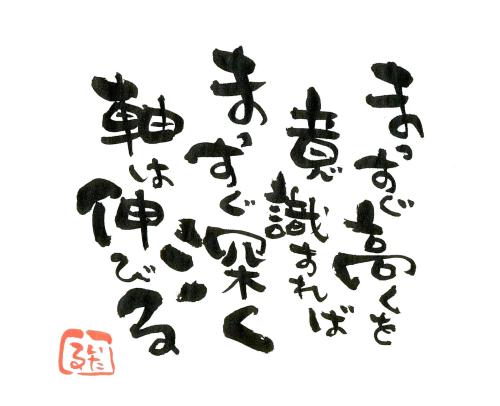 まっすぐ高くを
意識すれば
まっすぐ深く
軸は伸びる